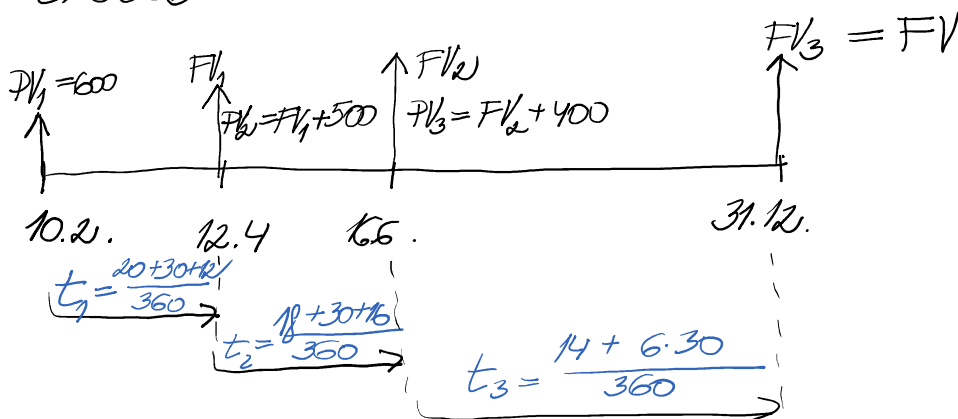 FV₃ = FV
PV₁ = 600
FV₁
FV₂
PV₂ = FV₁ + 500
PV₃ = FV₂ + 400
10.2. 12.4 16.6. 31.12.
t₁ = (20+30+12)/360
t₂ = (18+30+16)/360
t₃ = (14 + 6·30)/360